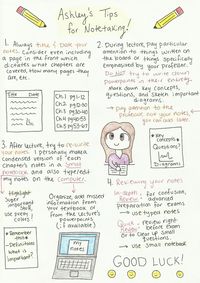 Ashley's Tips
for Notetaking!
1. Always title & date your
notes. Consider even including
a page in the front which
dictates which chapters are
covered, how many pages
they are, etc.
TITLE DATE
Ch1 pg 1-17
Ch4 pg 40-53
2. During lecture, pay particular
attention to things written on
the board or things specifically
emphasized by your professor.
Do NOT try to write down
PowerPoints in their entirety.
Mark down key concepts,
questions, and sketch important
diagrams.
→ pay attention to the
professor, not your notes,
you can add later.
• Key
concepts
• Questions?
3. After lecture, try to re-write
your notes. I personally make
condensed version of each
chapter's notes in a small
notebook and also typed
my notes on the computer.
Highlight
super
important
stuff,
use pretty
colors!
Organize, add missed
information from
your textbook or
from the lecture's
powerpoints
(if available)
• Remember
this
- Definition
what is
important?
my notes
4. Reviewing your notes
In-depth - For confusion,
Review advanced
preparation for exams
→ use typed notes
Quick - review right
Review before exam
or to clear up small
questions.
→ use small notebook
GOOD LUCK!